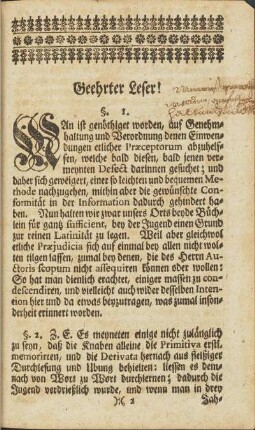 Geehrter Leser!
§. 1.
MAn ist genöthiget worden, auf Genehm-
haltung und Verordnung denen Einwen-
dungen etlicher Præceptorum abzuhelf-
fen, welche bald diesen, bald jenen ver-
meynten Defect darinnen gesuchet; und
daher sich geweigert, einer so leichten und bequemen Me-
thode nachzugehen, mithin aber die gewünschte Con-
formität in der Information dadurch gehindert ha-
ben. Nun halten wir zwar unsers Orts beyde Büch-
lein für ganz sufficient, bey der Jugend einen Grund
zur reinen Latinität zu legen. Weil aber gleichwol
etliche Præjudicia sich auf einmal bey allen nicht wol-
ten tilgen lassen, zumal bey denen, die des Herrn Au-
ctoris scopum nicht assequiren können oder wollen:
So hat man dienlich erachtet, einiger massen zu con-
descendiren, und vielleicht auch wider desselben Inten-
tion hier und da etwas beyzutragen, was zumal inson-
derheit erinnert worden.
§. 2. Z. E. Es meyneten einige nicht zulänglich
zu seyn, daß die Knaben alleine die Primitiva erstl.
memorirten, und die Derivata hernach aus fleißiger
Durchlesung und Ubung behielten: liessen es dem-
nach von Wort zu Wort durchlernen; dadurch die
Jugend verdrießlich wurde, und wenn man in drey
)( 2 Jah-